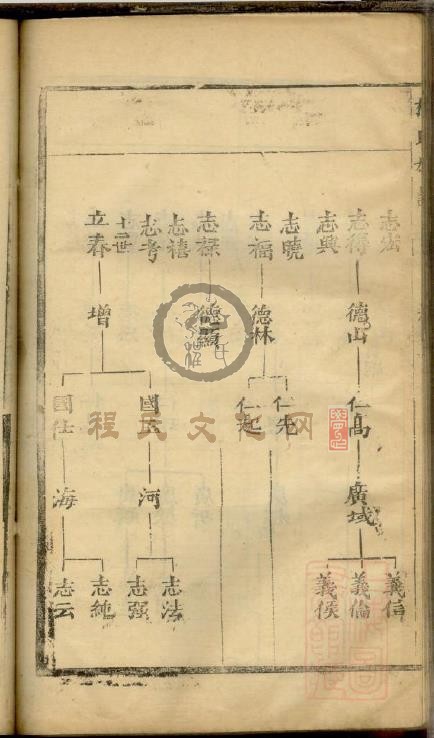 志得
志興
志曉
志福
志祿
志禧
志考
十二世
立春
德山
德林
德
增
仁高
仁先
仁起
國
國仕
廣域
河
海
義信
義倫
義候
志法
志强
志純
志云
程氏文化网